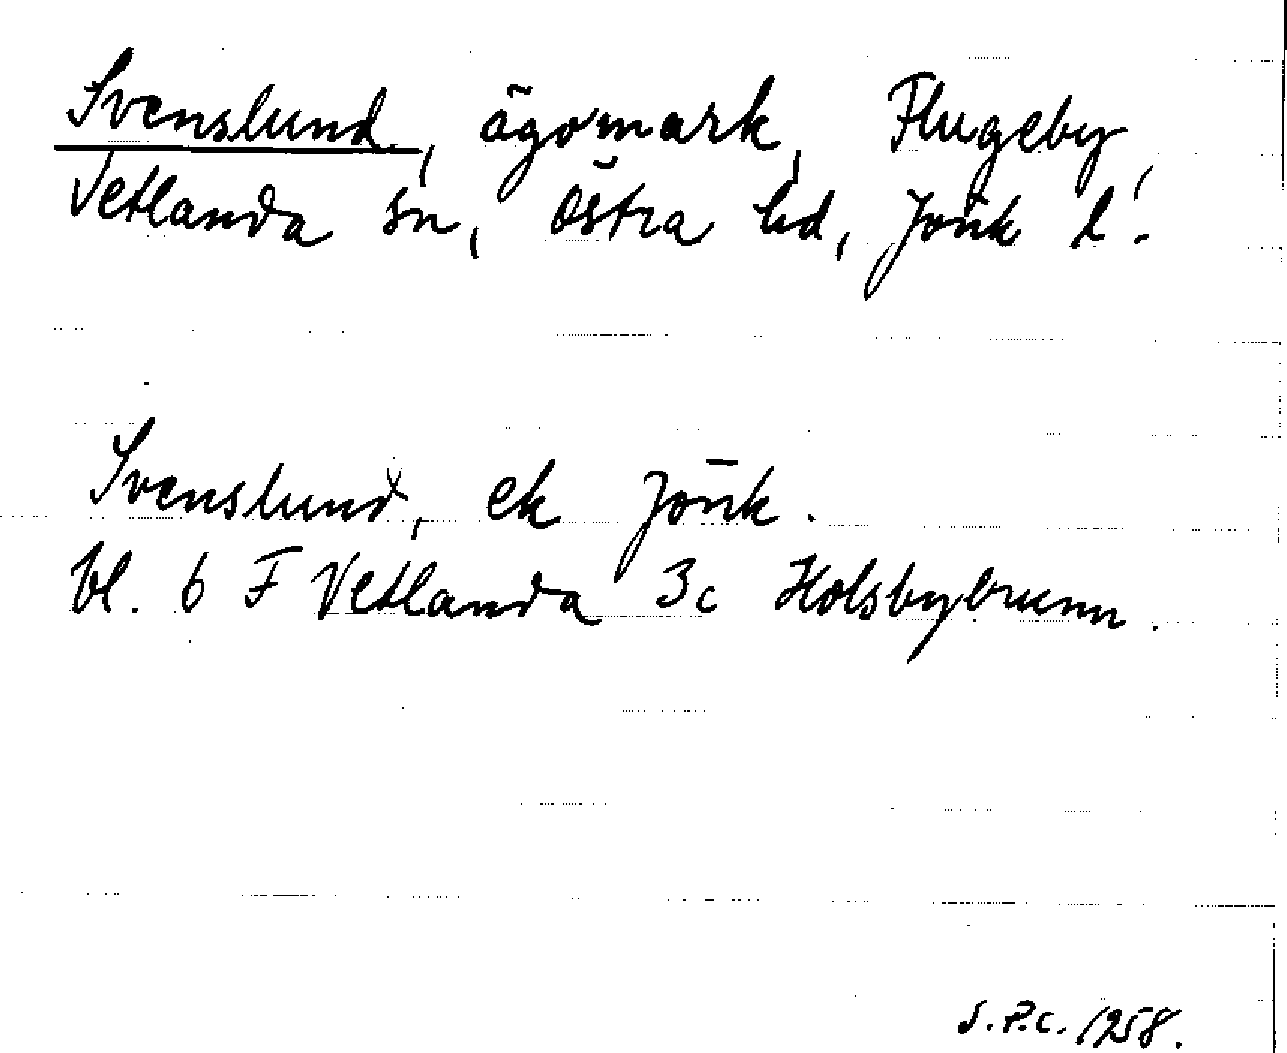 Svenslund, ägomark, Flugeby,
Vetlanda sn, Östra hd, Jönk l.
Svenslund, ek Jönk.
bl. 6 F Vetlanda 3c Holsbybrunn.
S.P.C. 1958.